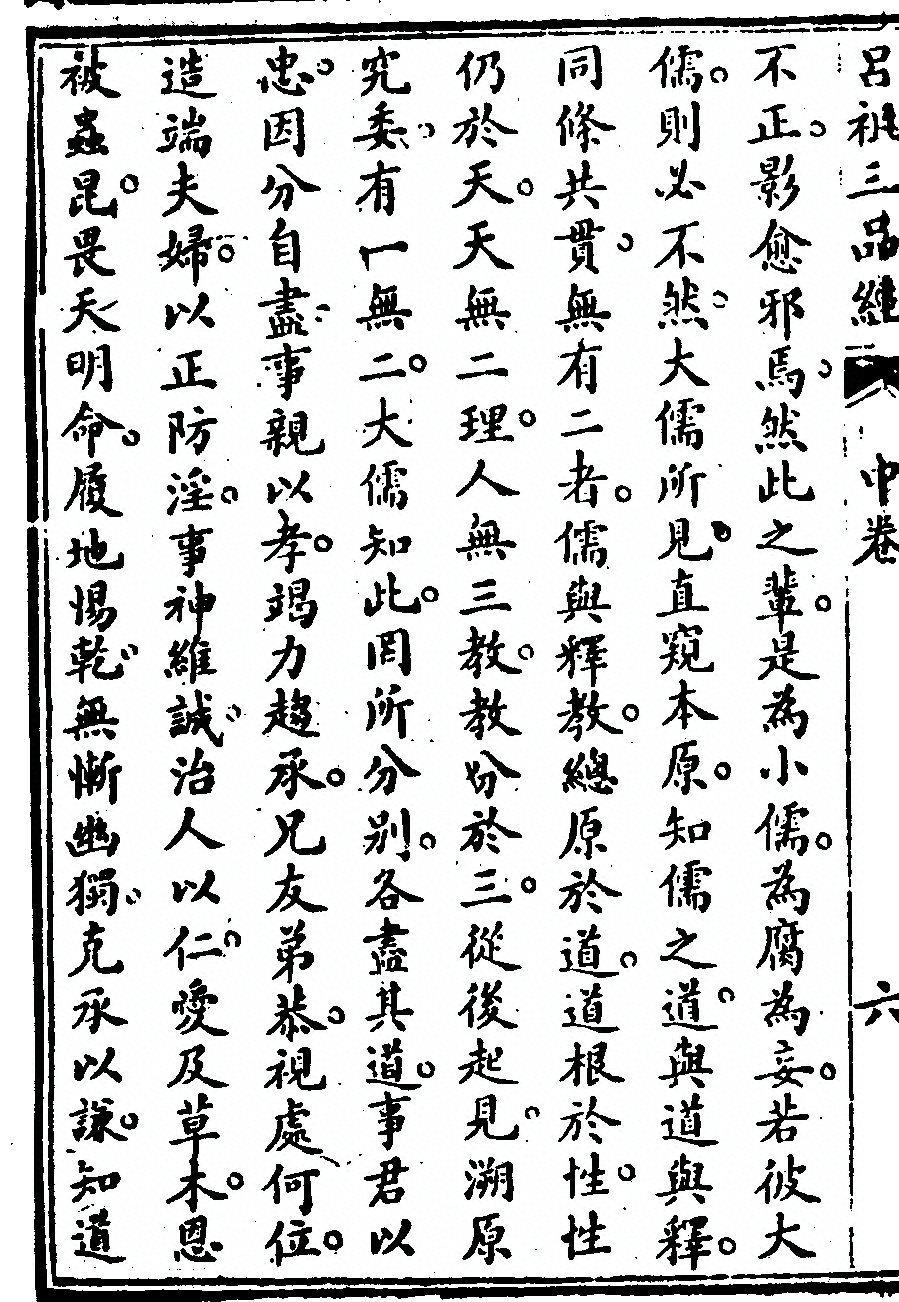 呂祖三品經 中卷 六
不正。影愈邪焉。然此之輩。是為小儒。為腐為妄。若彼大
儒。則必不然。大儒所見。直窺本原。知儒之道。與道與釋。
同條共貫。無有二者。儒與釋教。總原於道。道根於性。性
仍於天。天無二理。人無三教。教分於三。從後起見。溯原
究委。有一無二。大儒知此。罔所分別。各盡其道。事君以
忠。因分自盡。事親以孝。竭力趨承。兄友弟恭。視處何位。
造端夫婦。以正防淫。事神維誠。治人以仁。愛及草木。恩
被蟲昆。畏天明命。履地惕乾。無慚幽獨。克承以謙。知道